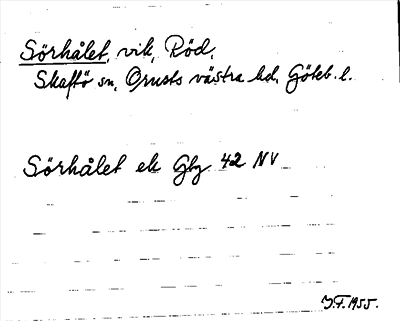 Sörhålet, vik, Röd,
Skaftö sn, Orusts västra hd, Göteb. l.
Sörhålet ek Gbg 42 NV
J.F. 1955.